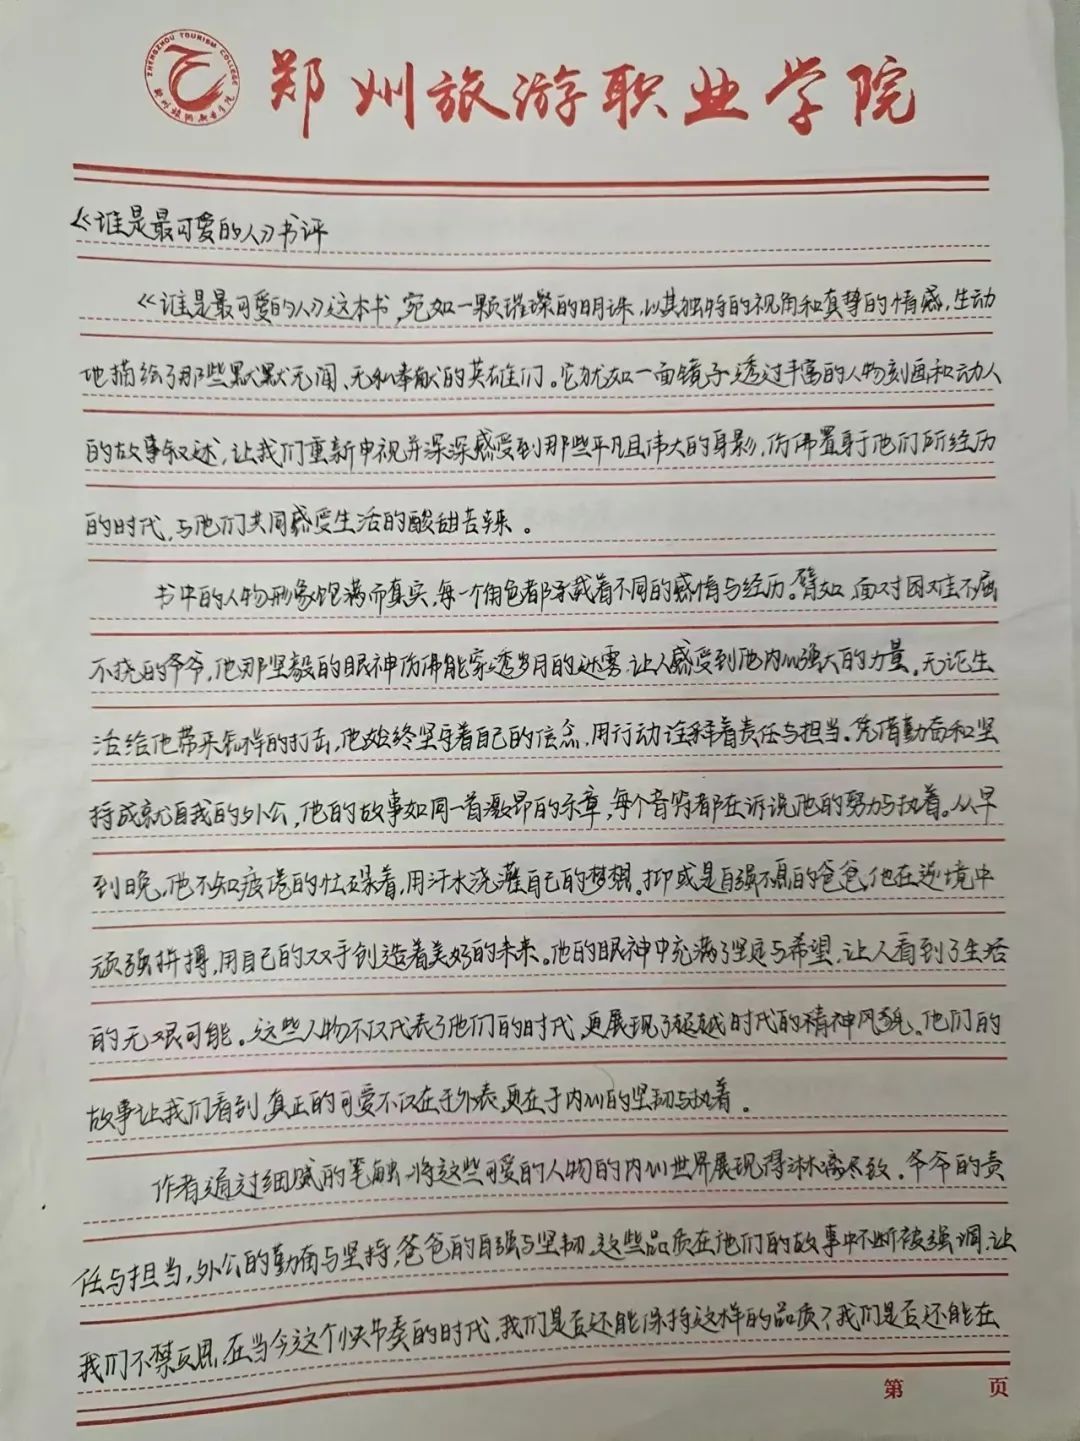 ZHENGZHOU TOURISM COLLEGE
郑州旅游职业学院
郑州旅游职业学院
《谁是最可爱的人》书评
《谁是最可爱的人》这本书,宛如一颗璀璨的明珠,以其独特的视角和真挚的情感,生动
地描绘了那些默默无闻、无私奉献的英雄们。它犹如一面镜子,透过丰富的人物刻画和动人
的故事叙述,让我们重新审视并深深感受到那些平凡且伟大的身影,仿佛置身于他们所经历
的时代,与他们共同感受生活的酸甜苦辣。
书中的人物形象饱满而真实,每一个角色都承载着不同的感情与经历。譬如,面对困难不屈
不挠的爷爷,他那坚毅的眼神仿佛能穿透岁月的迷雾,让人感受到他内心强大的力量。无论生
活给他带来怎样的打击,他始终坚守着自己的信念,用行动诠释着责任与担当。凭借勤奋和坚
持成就自我的外公,他的故事如同一首激昂的乐章,每个音符都在诉说他的努力与执着。从早
到晚,他不知疲倦的忙碌着,用汗水浇灌自己的梦想。抑或是自强不息的爸爸,他在逆境中
顽强拼搏,用自己的双手创造着美好的未来。他的眼神中充满了坚定与希望,让人看到了生活
的无限可能。这些人物不仅代表了他们的时代,更展现了超越时代的精神风貌。他们的
故事让我们看到,真正的可爱不仅在于外表,更在于内心的坚韧与执着。
作者通过细腻的笔触,将这些可爱的人物的内心世界展现得淋漓尽致。爷爷的责
任与担当,外公的勤奋与坚持,爸爸的自强与坚韧,这些品质在他们的故事中不断被强调,让
我们不禁反思,在当今这个快节奏的时代,我们是否还能保持这样的品质?我们是否还能在
第 页